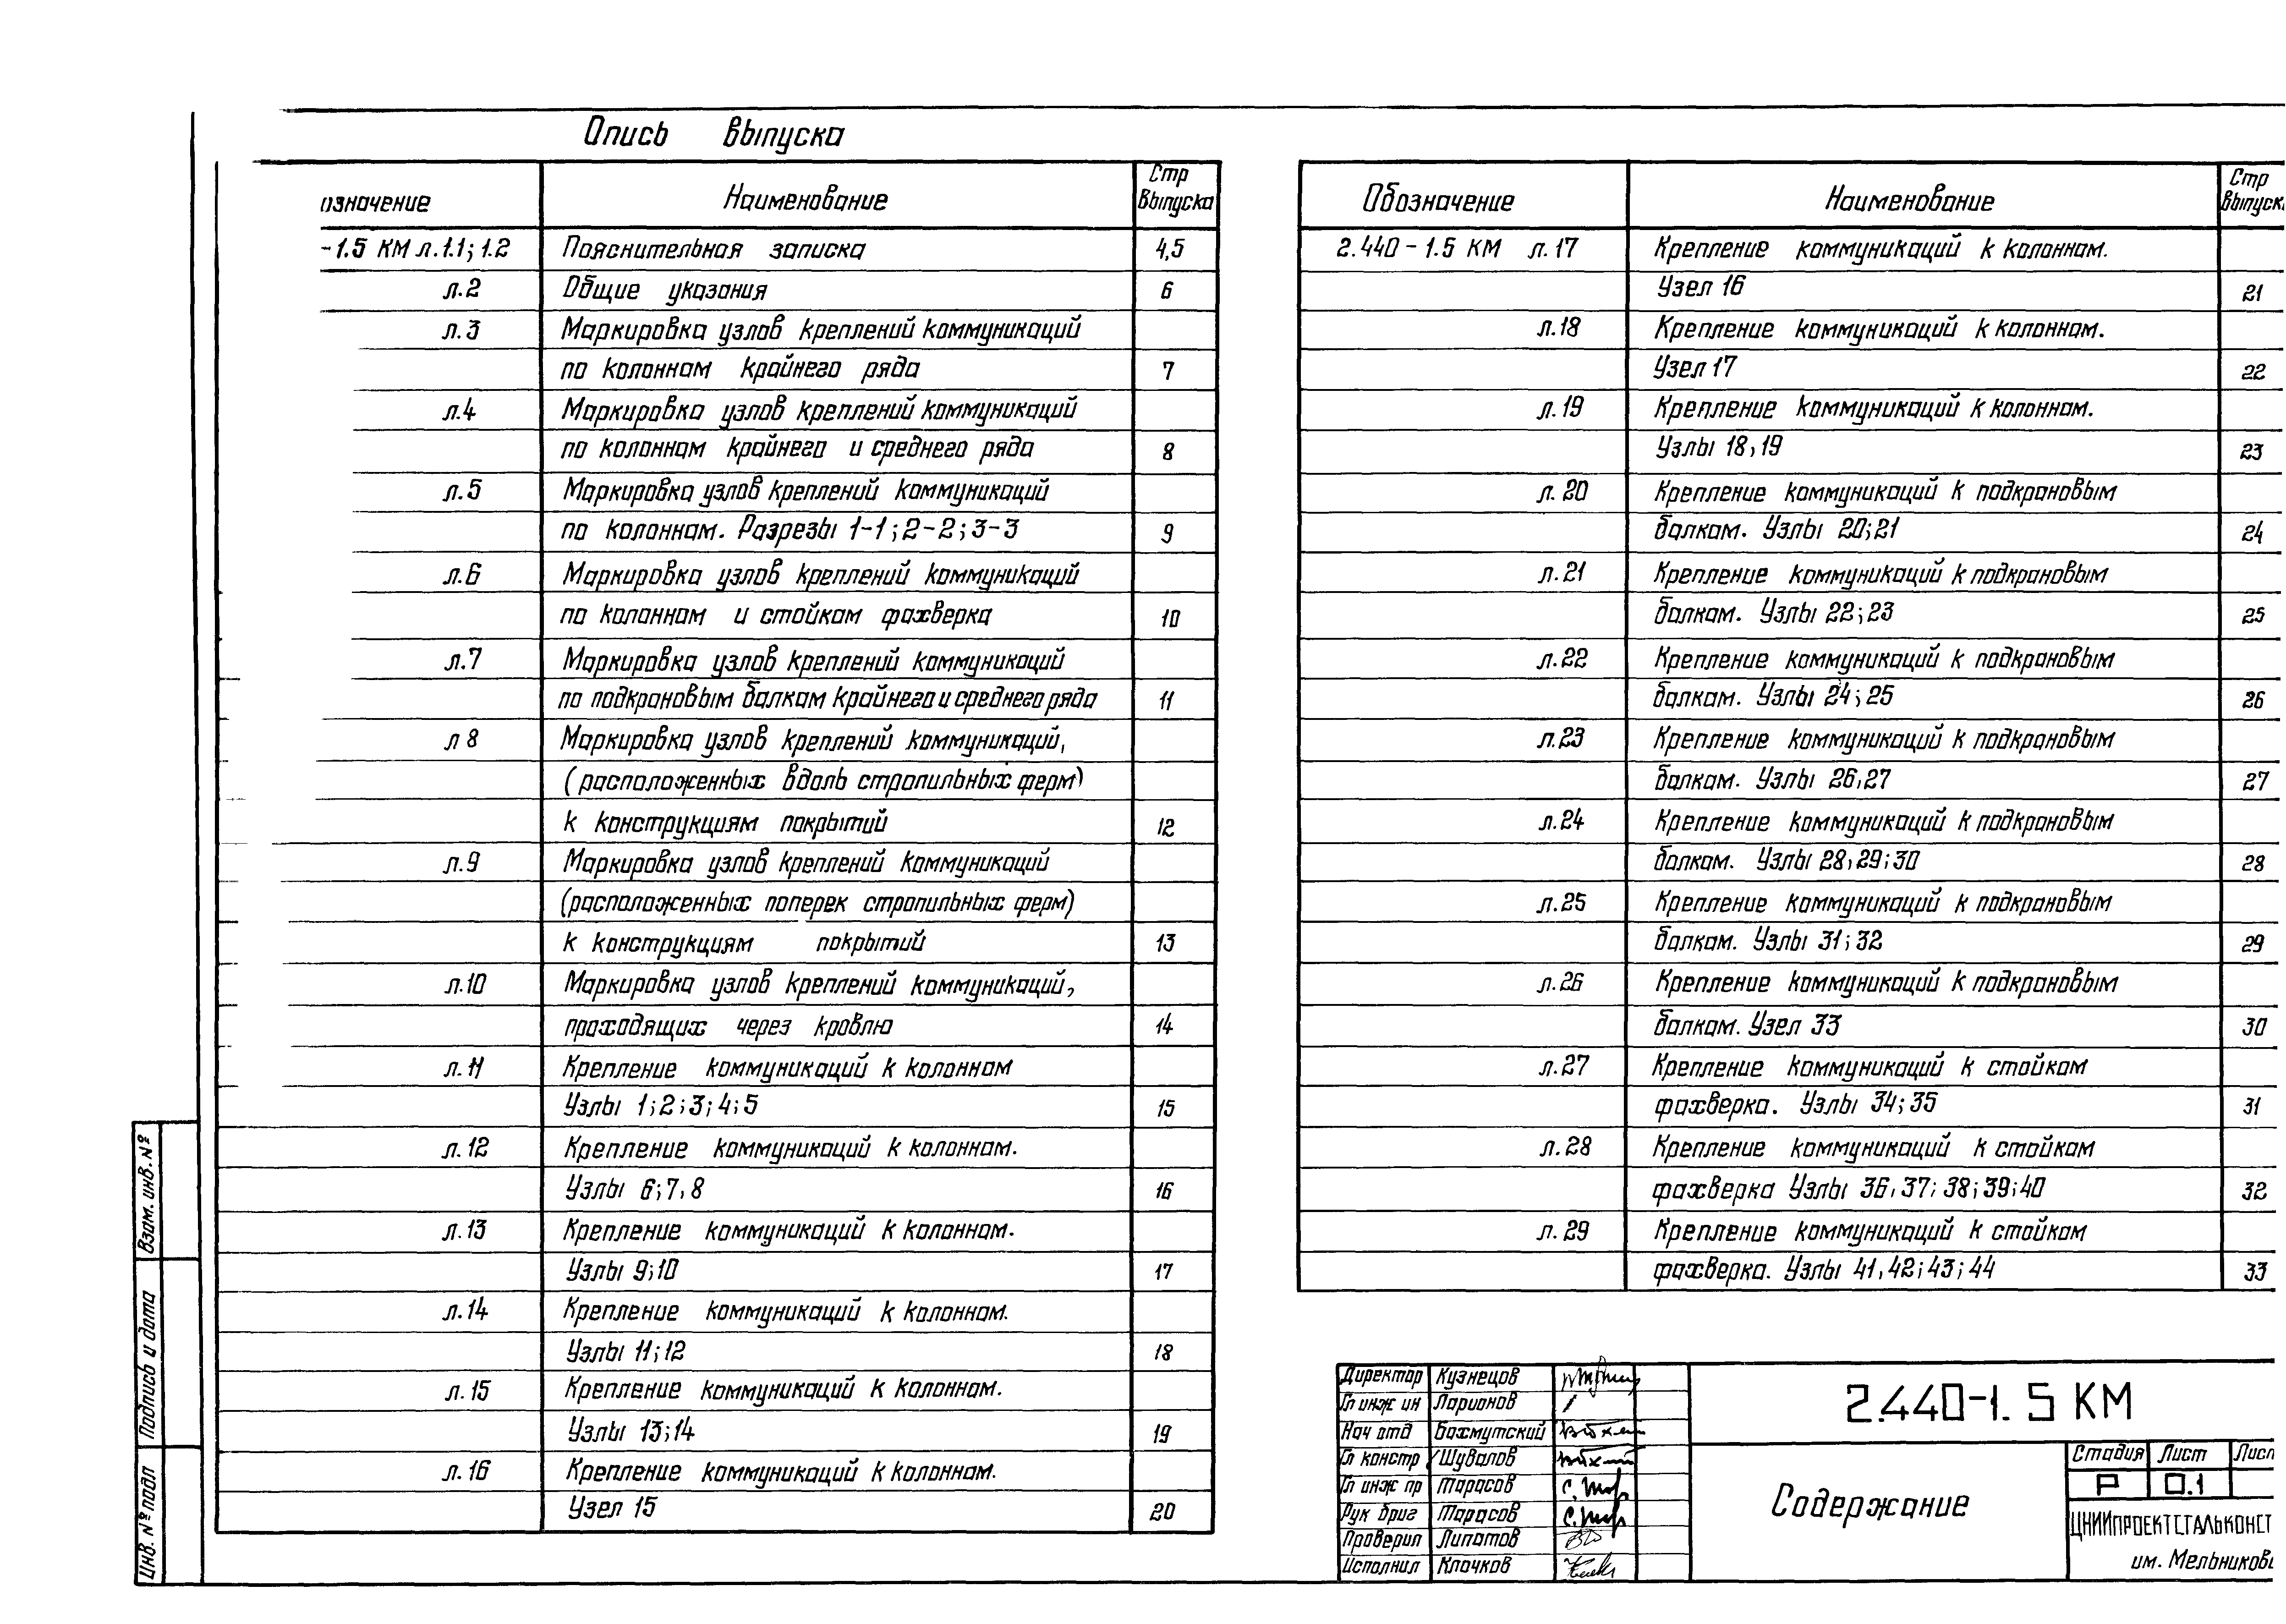 Опись выпуска
означение Наименование Стр выпуска
-1.5 КМ л.1.1; 1.2 Пояснительная записка 4,5
л.2 Общие указания 6
л.3 Маркировка узлов креплений коммуникаций
по колоннам крайнего ряда 7
л.4 Маркировка узлов креплений коммуникаций
по колоннам крайнего и среднего ряда 8
л.5 Маркировка узлов креплений коммуникаций
по колоннам. Разрезы 1-1; 2-2; 3-3 9
л.6 Маркировка узлов креплений коммуникаций
по колоннам и стойкам фахверка 10
л.7 Маркировка узлов креплений коммуникаций
по подкрановым балкам крайнего и среднего ряда 11
л 8 Маркировка узлов креплений коммуникаций,
(расположенных вдоль стропильных ферм)
к конструкциям покрытий 12
л.9 Маркировка узлов креплений коммуникаций
(расположенных поперек стропильных ферм)
к конструкциям покрытий 13
л.10 Маркировка узлов креплений коммуникаций,
проходящих через кровлю 14
л.11 Крепление коммуникаций к колоннам
Узлы 1; 2; 3; 4; 5 15
л.12 Крепление коммуникаций к колоннам.
Узлы 6; 7, 8 16
л.13 Крепление коммуникаций к колоннам.
Узлы 9; 10 17
л.14 Крепление коммуникаций к колоннам.
Узлы 11; 12 18
л.15 Крепление коммуникаций к колоннам.
Узлы 13; 14 19
л.16 Крепление коммуникаций к колоннам.
Узел 15 20
Обозначение Наименование Стр выпуск
2.440-1.5 КМ л.17 Крепление коммуникаций к колоннам.
Узел 16 21
л.18 Крепление коммуникаций к колоннам.
Узел 17 22
л.19 Крепление коммуникаций к колоннам.
Узлы 18, 19 23
л.20 Крепление коммуникаций к подкрановым
балкам. Узлы 20; 21 24
л.21 Крепление коммуникаций к подкрановым
балкам. Узлы 22; 23 25
л.22 Крепление коммуникаций к подкрановым
балкам. Узлы 24; 25 26
л.23 Крепление коммуникаций к подкрановым
балкам. Узлы 26, 27 27
л.24 Крепление коммуникаций к подкрановым
балкам. Узлы 28, 29; 30 28
л.25 Крепление коммуникаций к подкрановым
балкам. Узлы 31; 32 29
л.26 Крепление коммуникаций к подкрановым
балкам. Узел 33 30
л.27 Крепление коммуникаций к стойкам
фахверка. Узлы 34; 35 31
л.28 Крепление коммуникаций к стойкам
фахверка Узлы 36, 37; 38; 39; 40 32
л.29 Крепление коммуникаций к стойкам
фахверка. Узлы 41, 42; 43; 44 33
Взам. инв. №
Подпись и дата
Инв. № подл
Директор Кузнецов
Гл инж ин Ларионов
Нач отд Бахмутский
Гл констр Шувалов
Гл инж пр Тарасов
Рук бриг Тарасов
Проверил Липатов
Исполнил Клочков
2.440-1.5 КМ
Содержание
Стадия Лист Лист
Р 0.1
ЦНИИПРОЕКТСТАЛЬКОНСТ
им. Мельникова